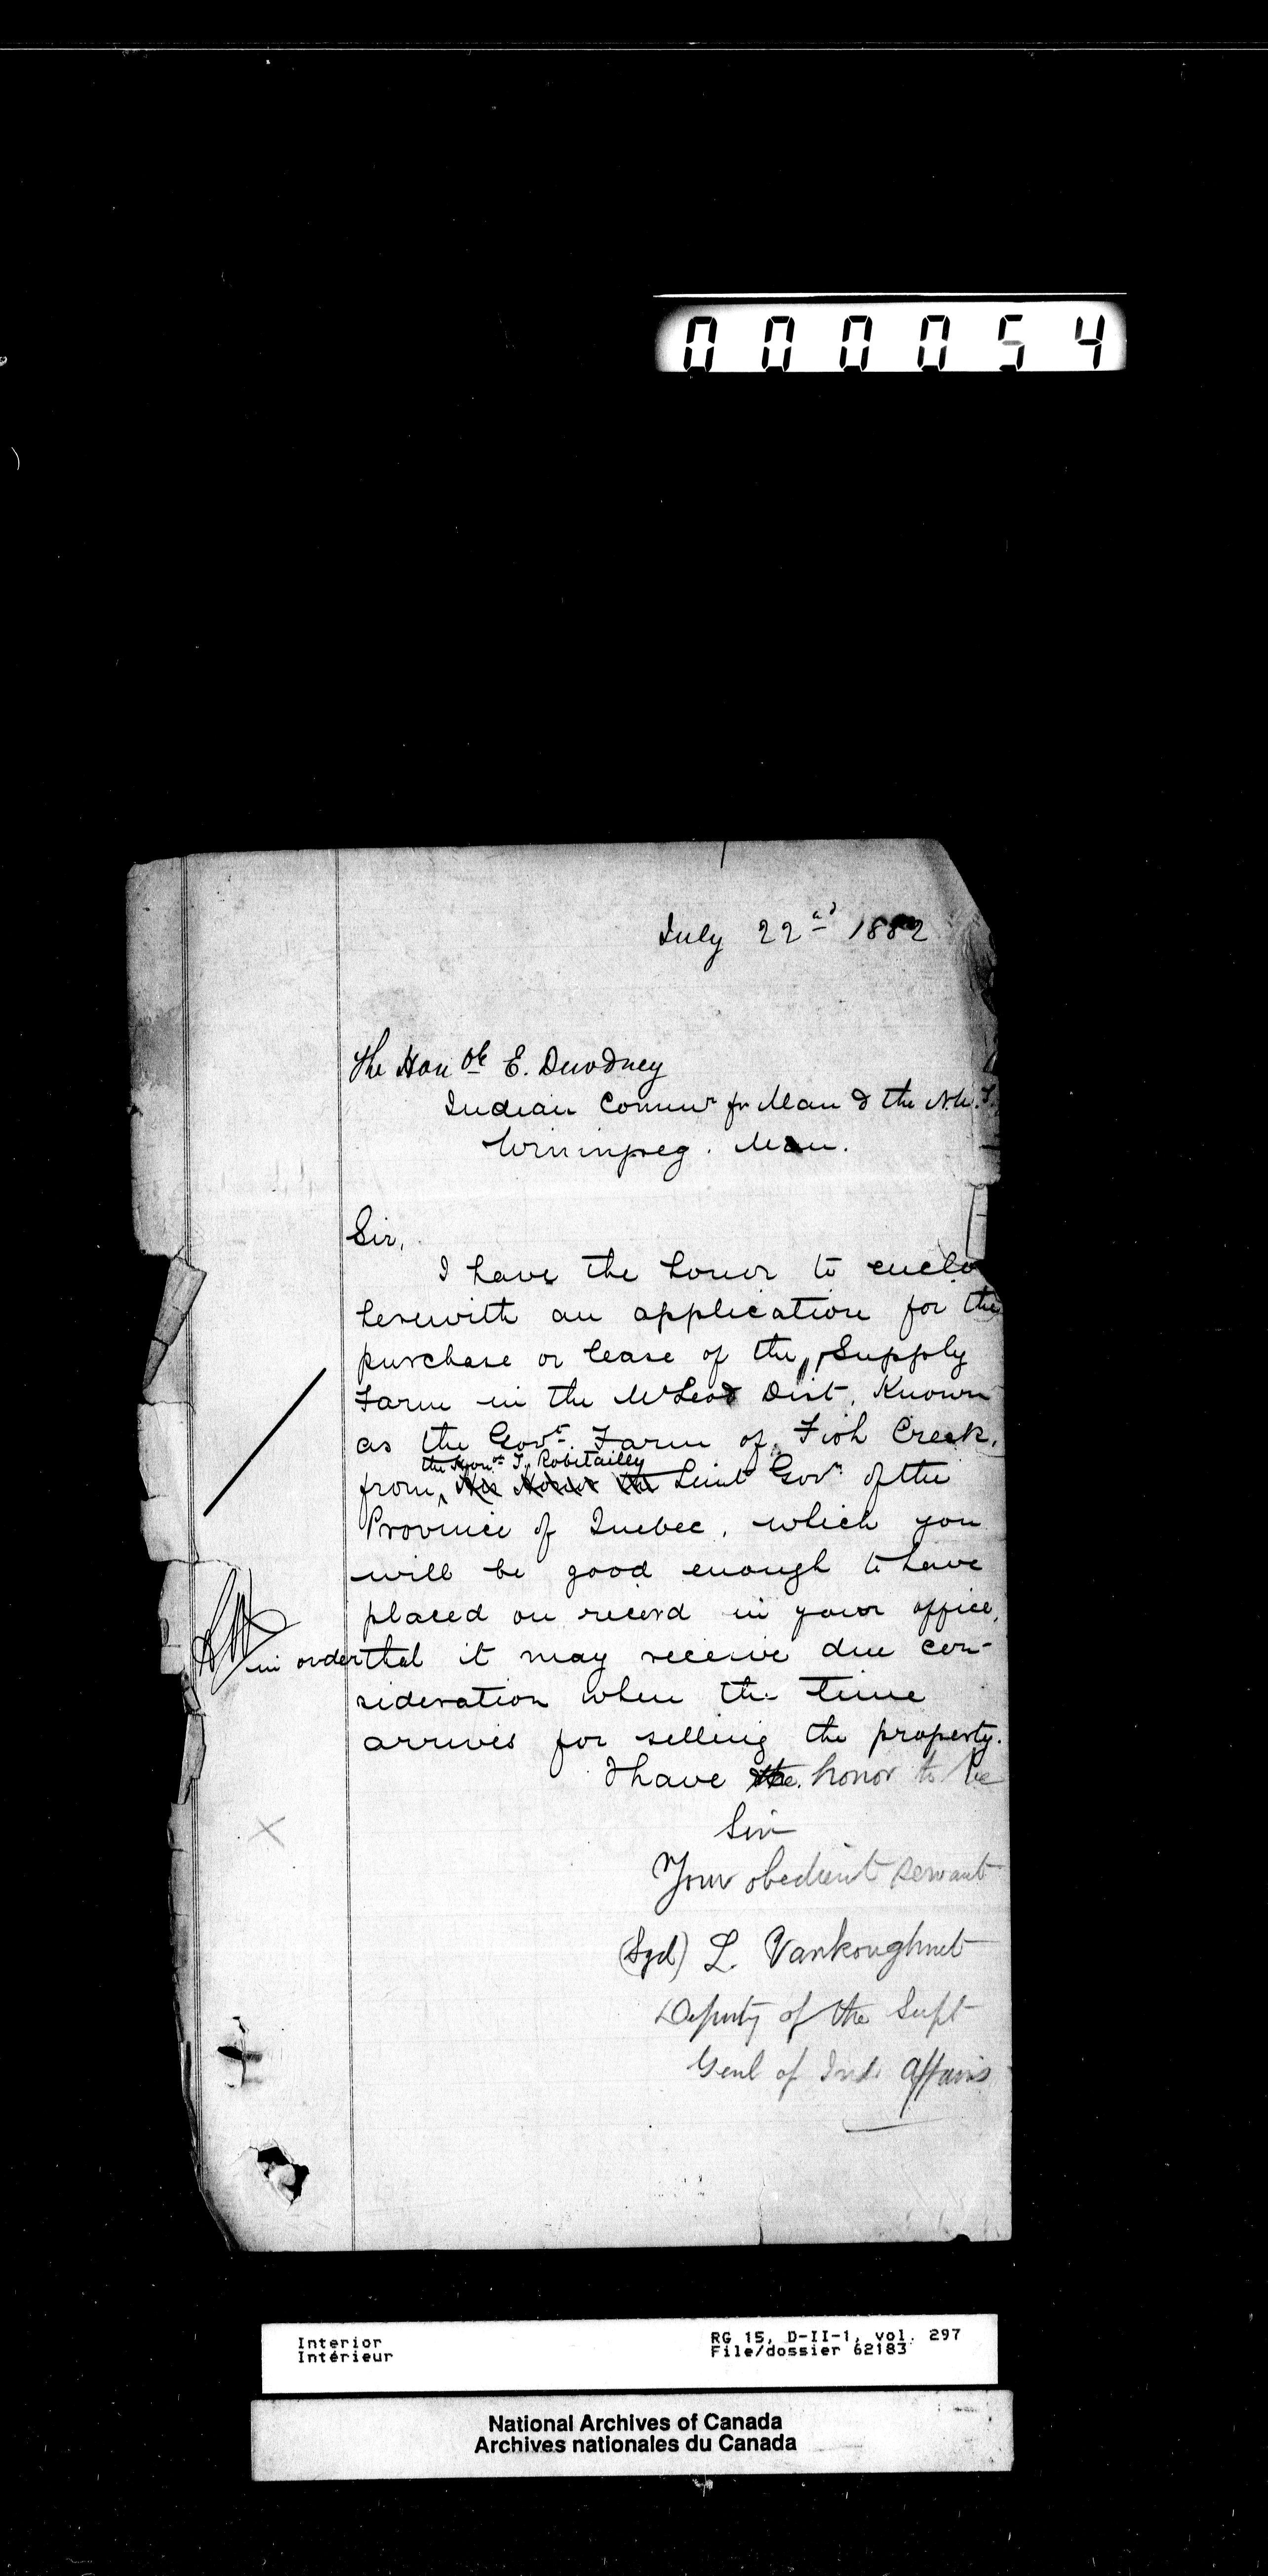 000054
July 22nd 1882
The Honble E. Dewdney
Indian Commr for Man & the N.W.T.
Winnipeg. Man.
Sir,
I have the honor to enclo
herewith an application for the
purchase or lease of the Supply
Farm in the McLeod Dist. Known
as the Govt. Farm of Fish Creek,
the Honr. T. Robitailly
from His Honor the Lieut Govr of the
Province of Quebec, which you
will be good enough to have
placed on record in your office,
in order that it may receive due con-
sideration when the time
arrives for selling the property.
I have the honor to be
Sir
Your obedient servant
(Sgd) L. Vankoughnet
Deputy of the Supt
Genl of Ind. Affairs
Interior
Intérieur
RG 15, D-II-1, vol. 297
File/dossier 62183
National Archives of Canada
Archives nationales du Canada